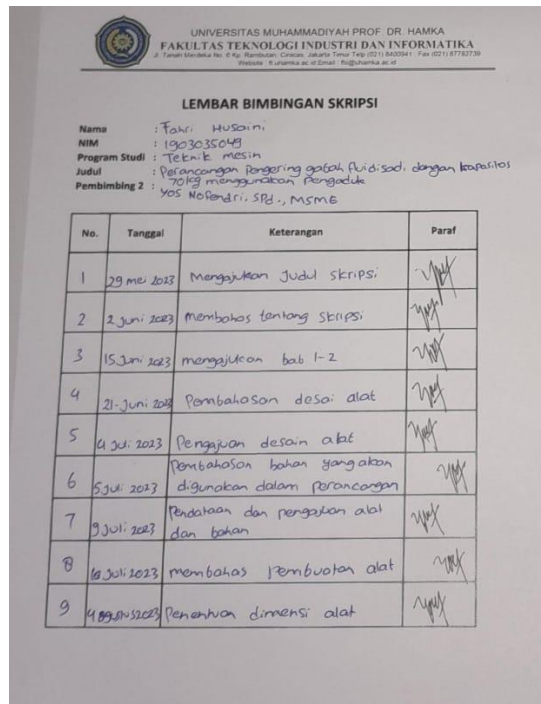 UNIVERSITAS MUHAMMADIYAH PROF. DR. HAMKA
FAKULTAS TEKNOLOGI INDUSTRI DAN INFORMATIKA
Jl. Tanah Merdeka No. 6 Kp. Rambutan, Ciracas, Jakarta Timur Telp (021) 8400941 ; Fax (021) 87782739
Website : ft.uhamka.ac.id Email :
LEMBAR BIMBINGAN SKRIPSI
Nama : Fahri Husaini
NIM : 1903035049
Program Studi : Teknik mesin
Judul : Perancangan Pengering gabah fluidisadi dengan kapasitas
70 kg menggunakan Pengaduk
Pembimbing 2 : Yos Nofendri. SPd., MSME
No. Tanggal Keterangan Paraf
1 29 mei 2023 Mengajukan Judul skripsi
2 2 Juni 2023 membahas tentang skripsi
3 15 Juni 2023 mengajukan bab 1-2
4 21-Juni 2023 Pembahasan desai alat
5 4 Juli 2023 Pengajuan desain alat
6 5 Juli 2023 Pembahasan bahan yang akan
digunakan dalam perancangan
7 9 Juli 2023 Pendataan dan alat
dan bahan
8 Juli 2023 membahas Pembuatan alat
9 4 2023 Penentuan dimensi alat